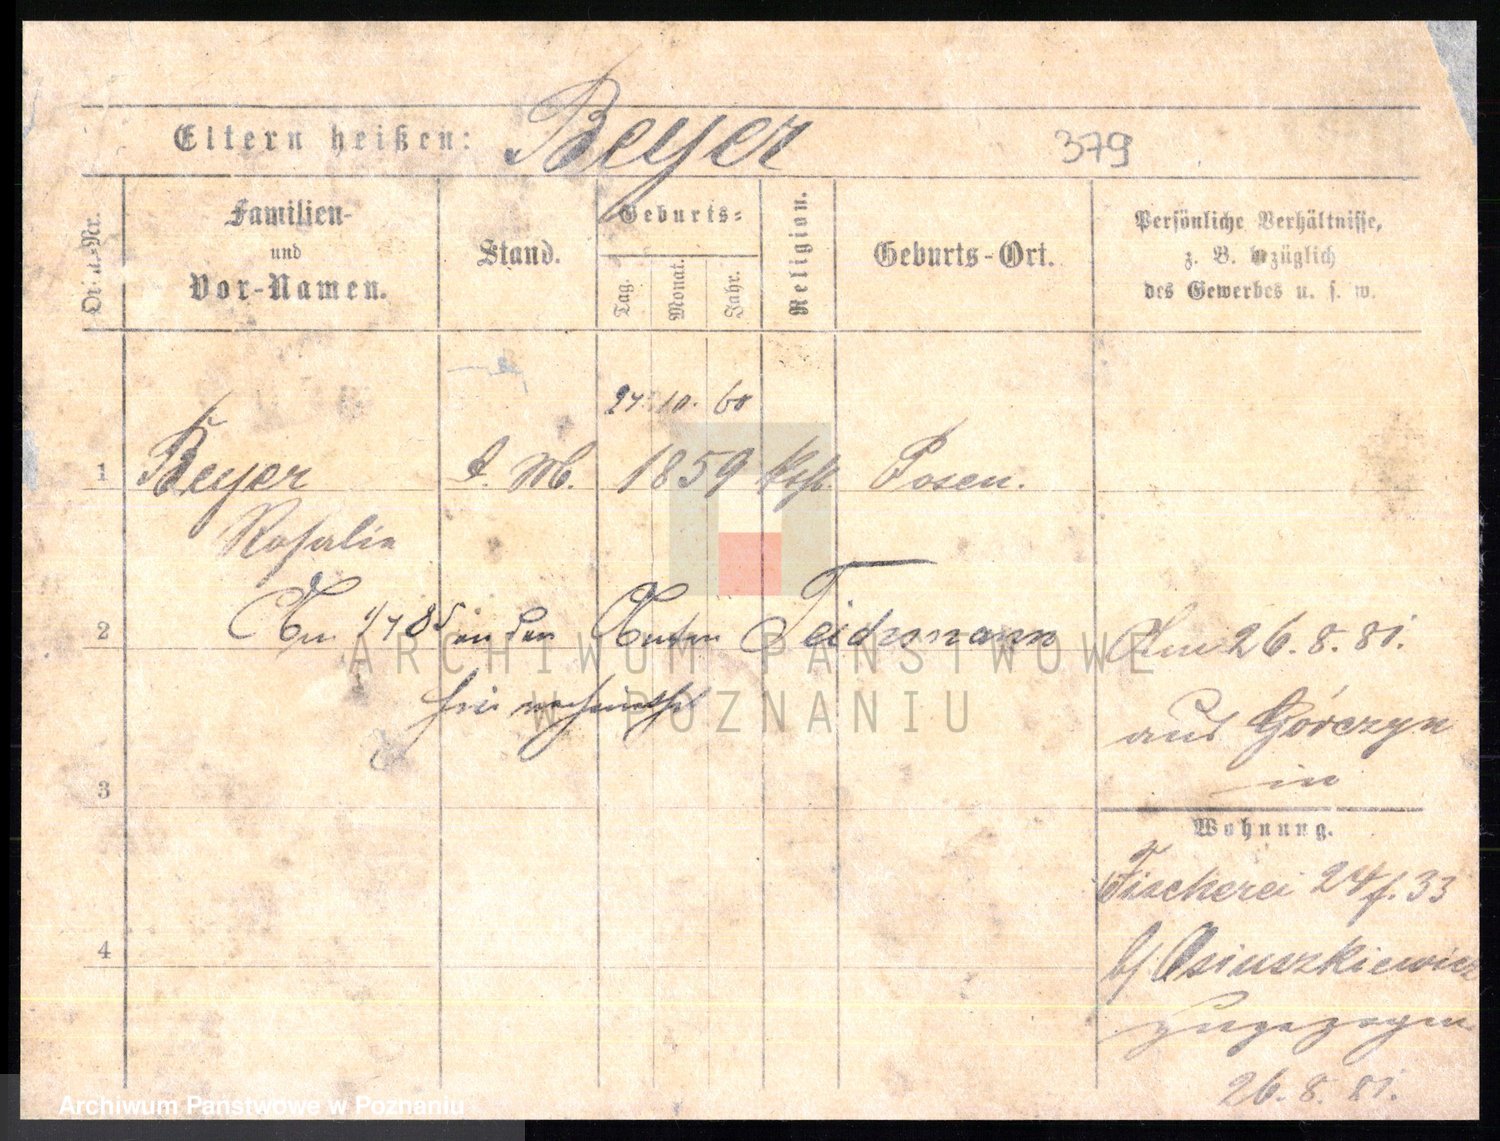 Eltern heißen: Beyer 379
Ord.-Nr.
Familien-
und
Vor-Namen.
Stand.
Geburts-
Tag.
Monat.
Jahr.
Religion.
Geburts-Ort.
Persönliche Verhältnisse,
z. B. bezüglich
des Gewerbes u. s. w.
27. 10. 60
1 Beyer d. M. 1859 kath. Posen.
Rosalie
2 in den
3
4
Am 26. 8. 81.
aus Górczyn
in
Wohnung.
Fischerei 24 f. 33
bei Osiuszkiewicz
zugezogen
26. 8. 81.
ARCHIWUM PAŃSTWOWE
W POZNANIU
Archiwum Państwowe w Poznaniu